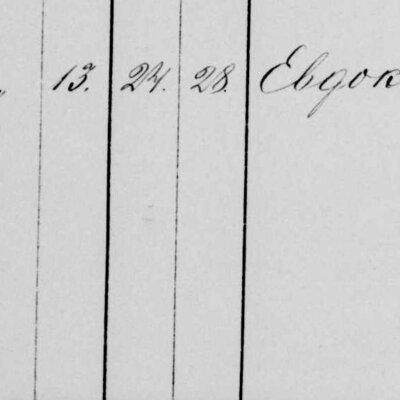 13. 24. 28. Евдок